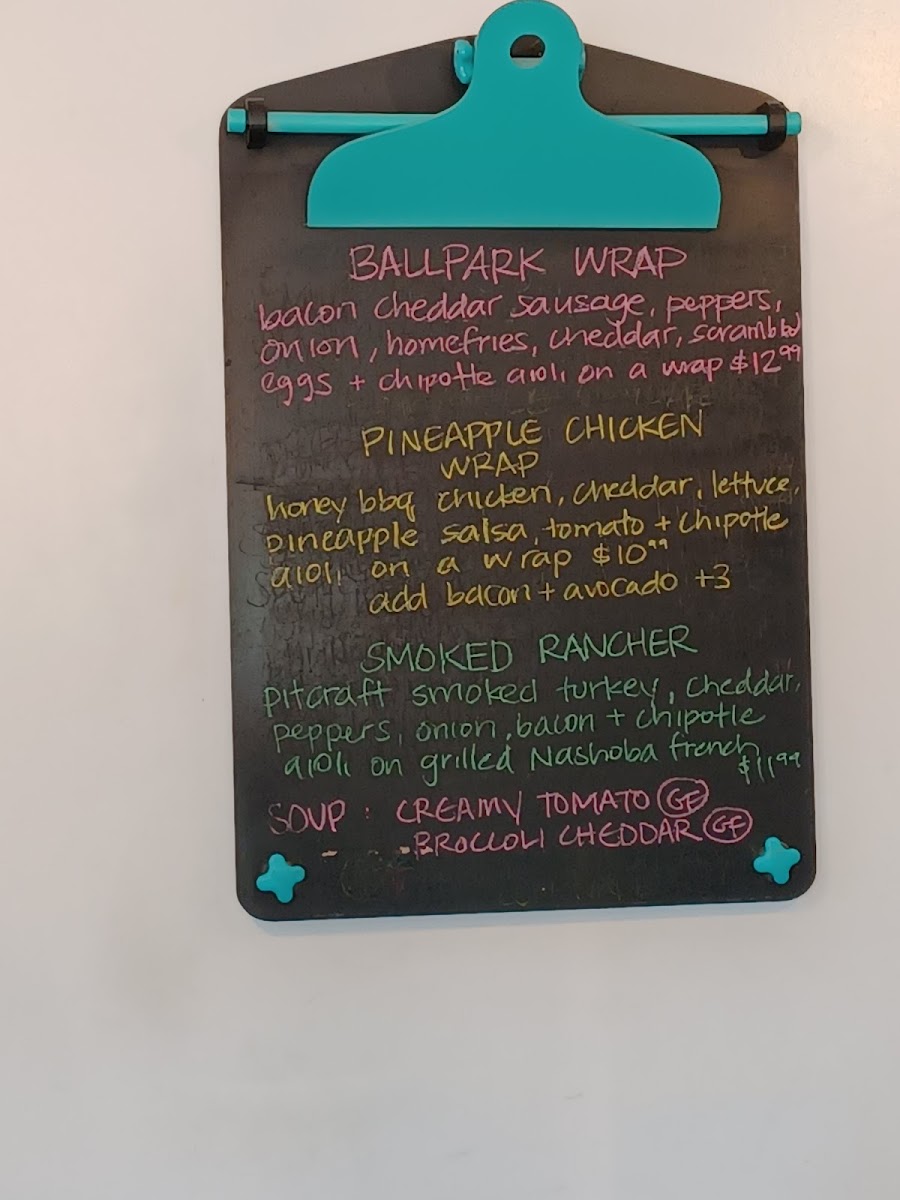 BALLPARK WRAP
bacon cheddar sausage, peppers,
onion, homefries, cheddar, scrambled
eggs + chipotle aioli on a wrap $12.99
PINEAPPLE CHICKEN
WRAP
honey bbq chicken, cheddar, lettuce,
pineapple salsa, tomato + chipotle
aioli on a wrap $10.99
add bacon + avocado +3
SMOKED RANCHER
pitcraft smoked turkey, cheddar,
peppers, onion, bacon + chipotle
aioli on grilled Nashoba french
$11.99
SOUP : CREAMY TOMATO GF
BROCCOLI CHEDDAR GF